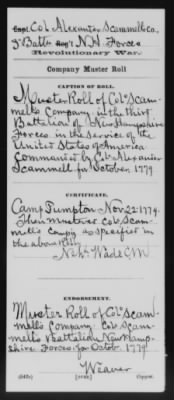 Capt. Col. Alexander Scammell's Co.,
3d Batt'n Reg't N.H. Forces
Revolutionary War.
Company Muster Roll
CAPTION OF ROLL.
Muster Roll of Col. Scam-
mell's Company in the third
Battalion of New Hampshire
Forces in the Service of the
United States of America
Commanded by Col. Alexander
Scammell for October 1779
CERTIFICATE.
Camp Pumpton Nov. 22. 1779.
Then mustered Col. Scam-
mell's Comp'y as specified in
the above Roll
Neh. Wade C M
ENDORSEMENT.
Muster Roll of Col. Scam-
mells Company Col. Scam-
mells Battalion New Hamp-
shire Forces for Octobr. 1779
Weaver
Copyist.